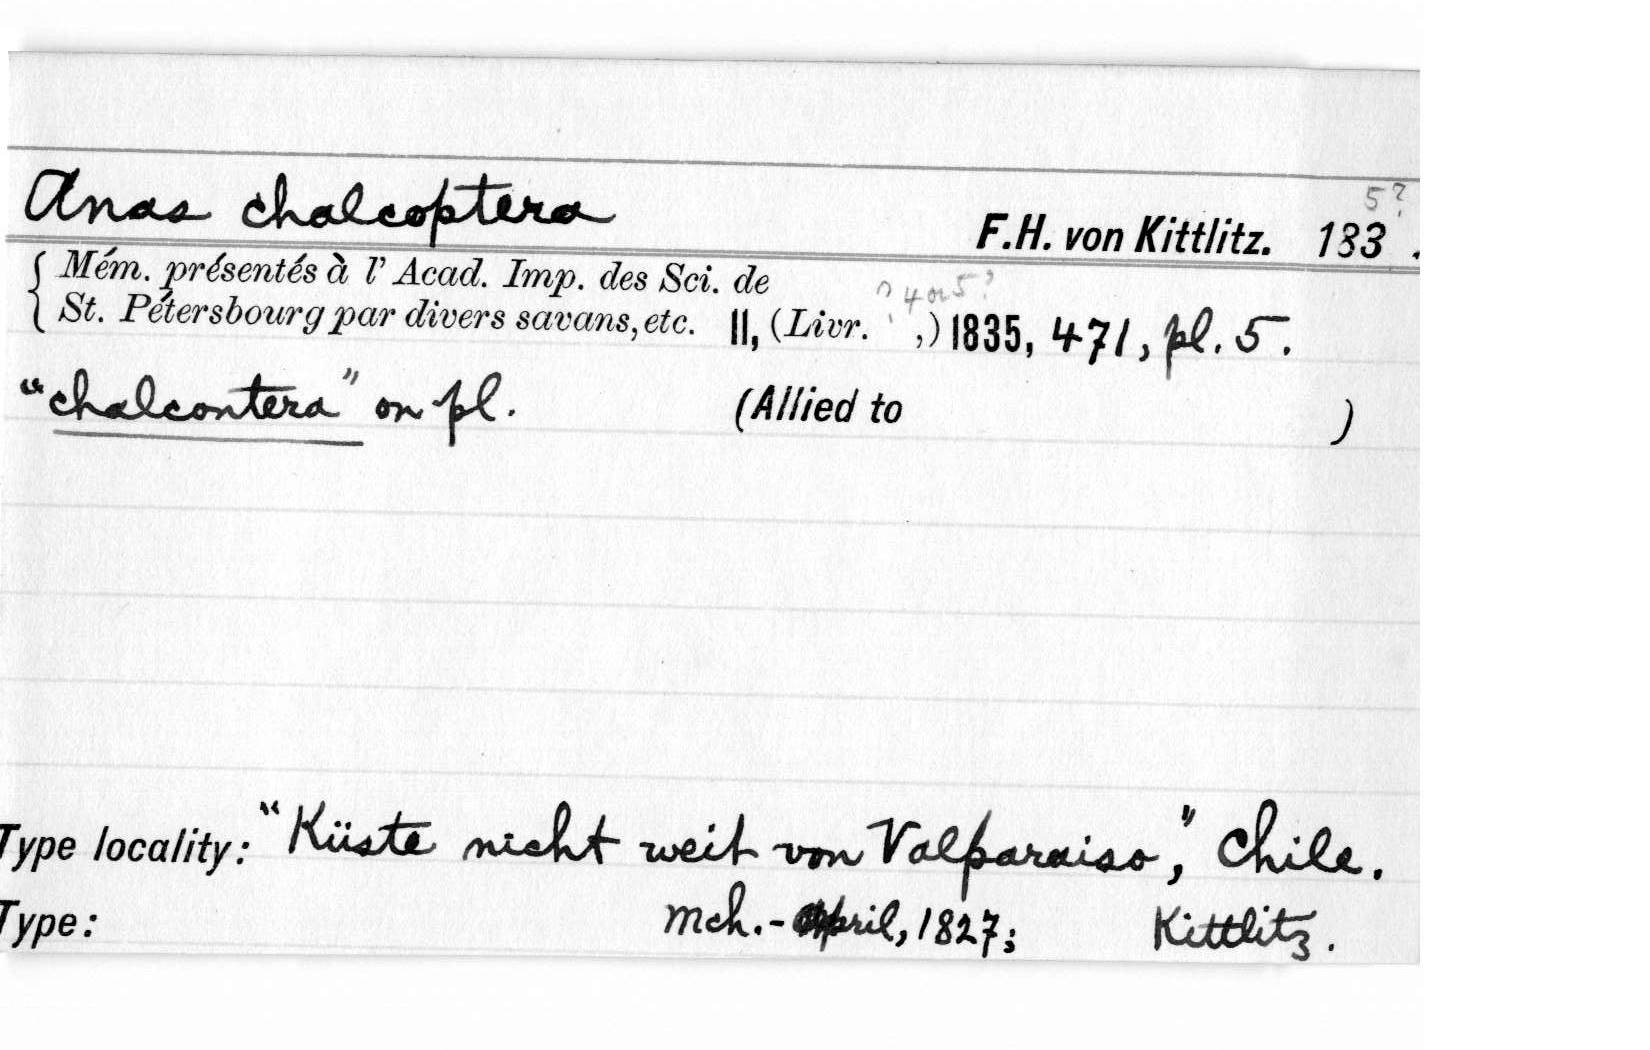 Anas chalcoptera F.H. von Kittlitz. 1835?.
Mém. présentés à l' Acad. Imp. des Sci. de
St. Pétersbourg par divers savans, etc. II, (Livr. ? 4 or 5?,) 1835, 471, pl. 5.
"chalcontera" on pl. (Allied to )
Type locality: "Küste nicht weit von Valparaiso," Chile.
Type: Mch.-April, 1827; Kittlitz.